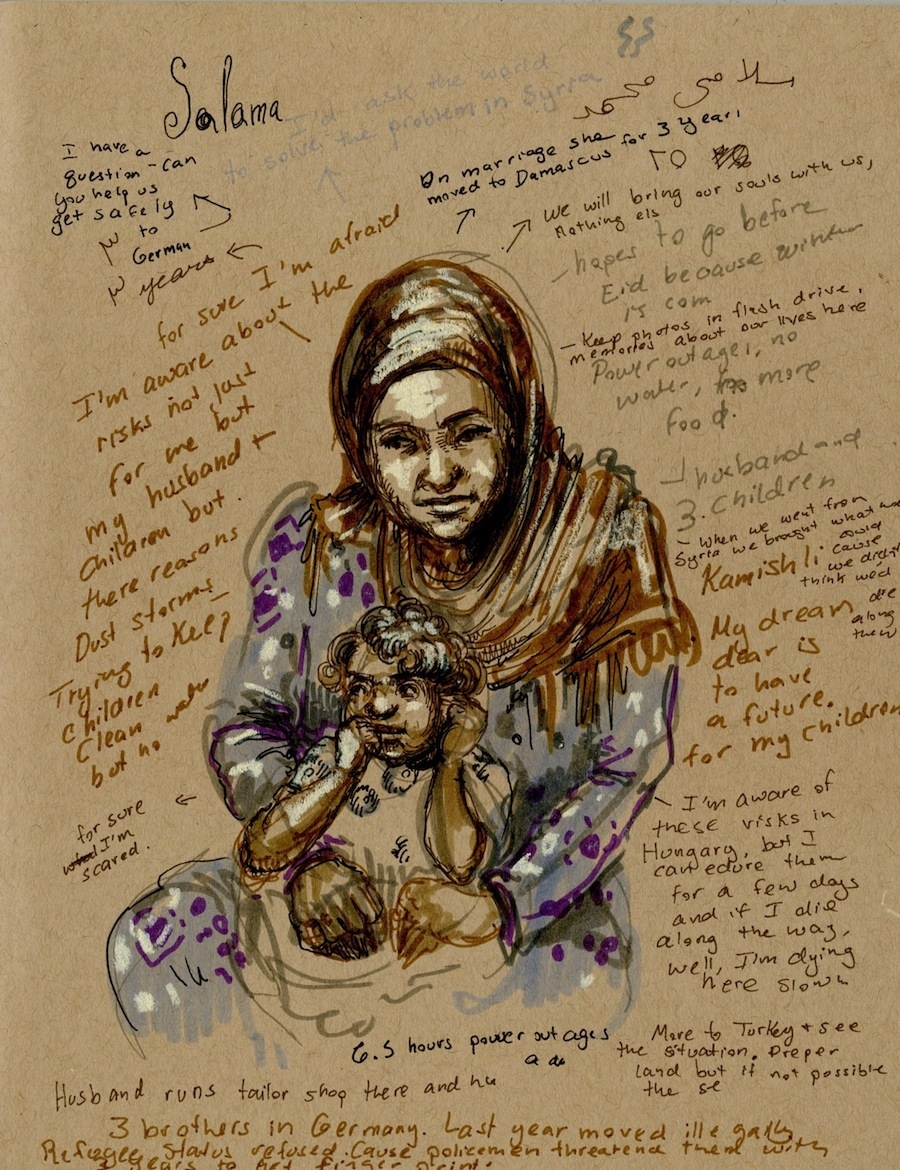 Salama
I'd ask the world
to solve the problem in Syria
سلامى محمد
25
I have a
question - can
you help us
get safely
to
German
3 years
On marriage she
moved to Damascus for 3 year,
We will bring our souls with us,
Nothing els
- hopes to go before
Eid because winter
is com
- Keep photos in flash drive,
memories about our lives here
Power outages, no
water, no more
food.
husband and
3. Children
- when we went from
Syria we brought what we
could
cause
we didn't
think we'd
die
along
the
Kamishli
My dream
dear is
to have
a future.
for my children
for sure I'm afraid
I'm aware about the
risks not just
for me but
my husband +
children but.
there reasons
Dust storms
Trying to Keep
children
Clean water
but no
for sure
I'm
scared.
I'm aware of
these risks in
Hungary, but I
can edure them
for a few days
and if I die
along the way,
well, I'm dying
here slown
6.5 hours power outages
a da
More to Turkey + see
the situation. Preper
land but if not possible
the se
Husband runs tailor shop there and he
3 brothers in Germany. Last year moved illegally
Refugee status refused. Cause policemen threatend them with
years to get finger print.